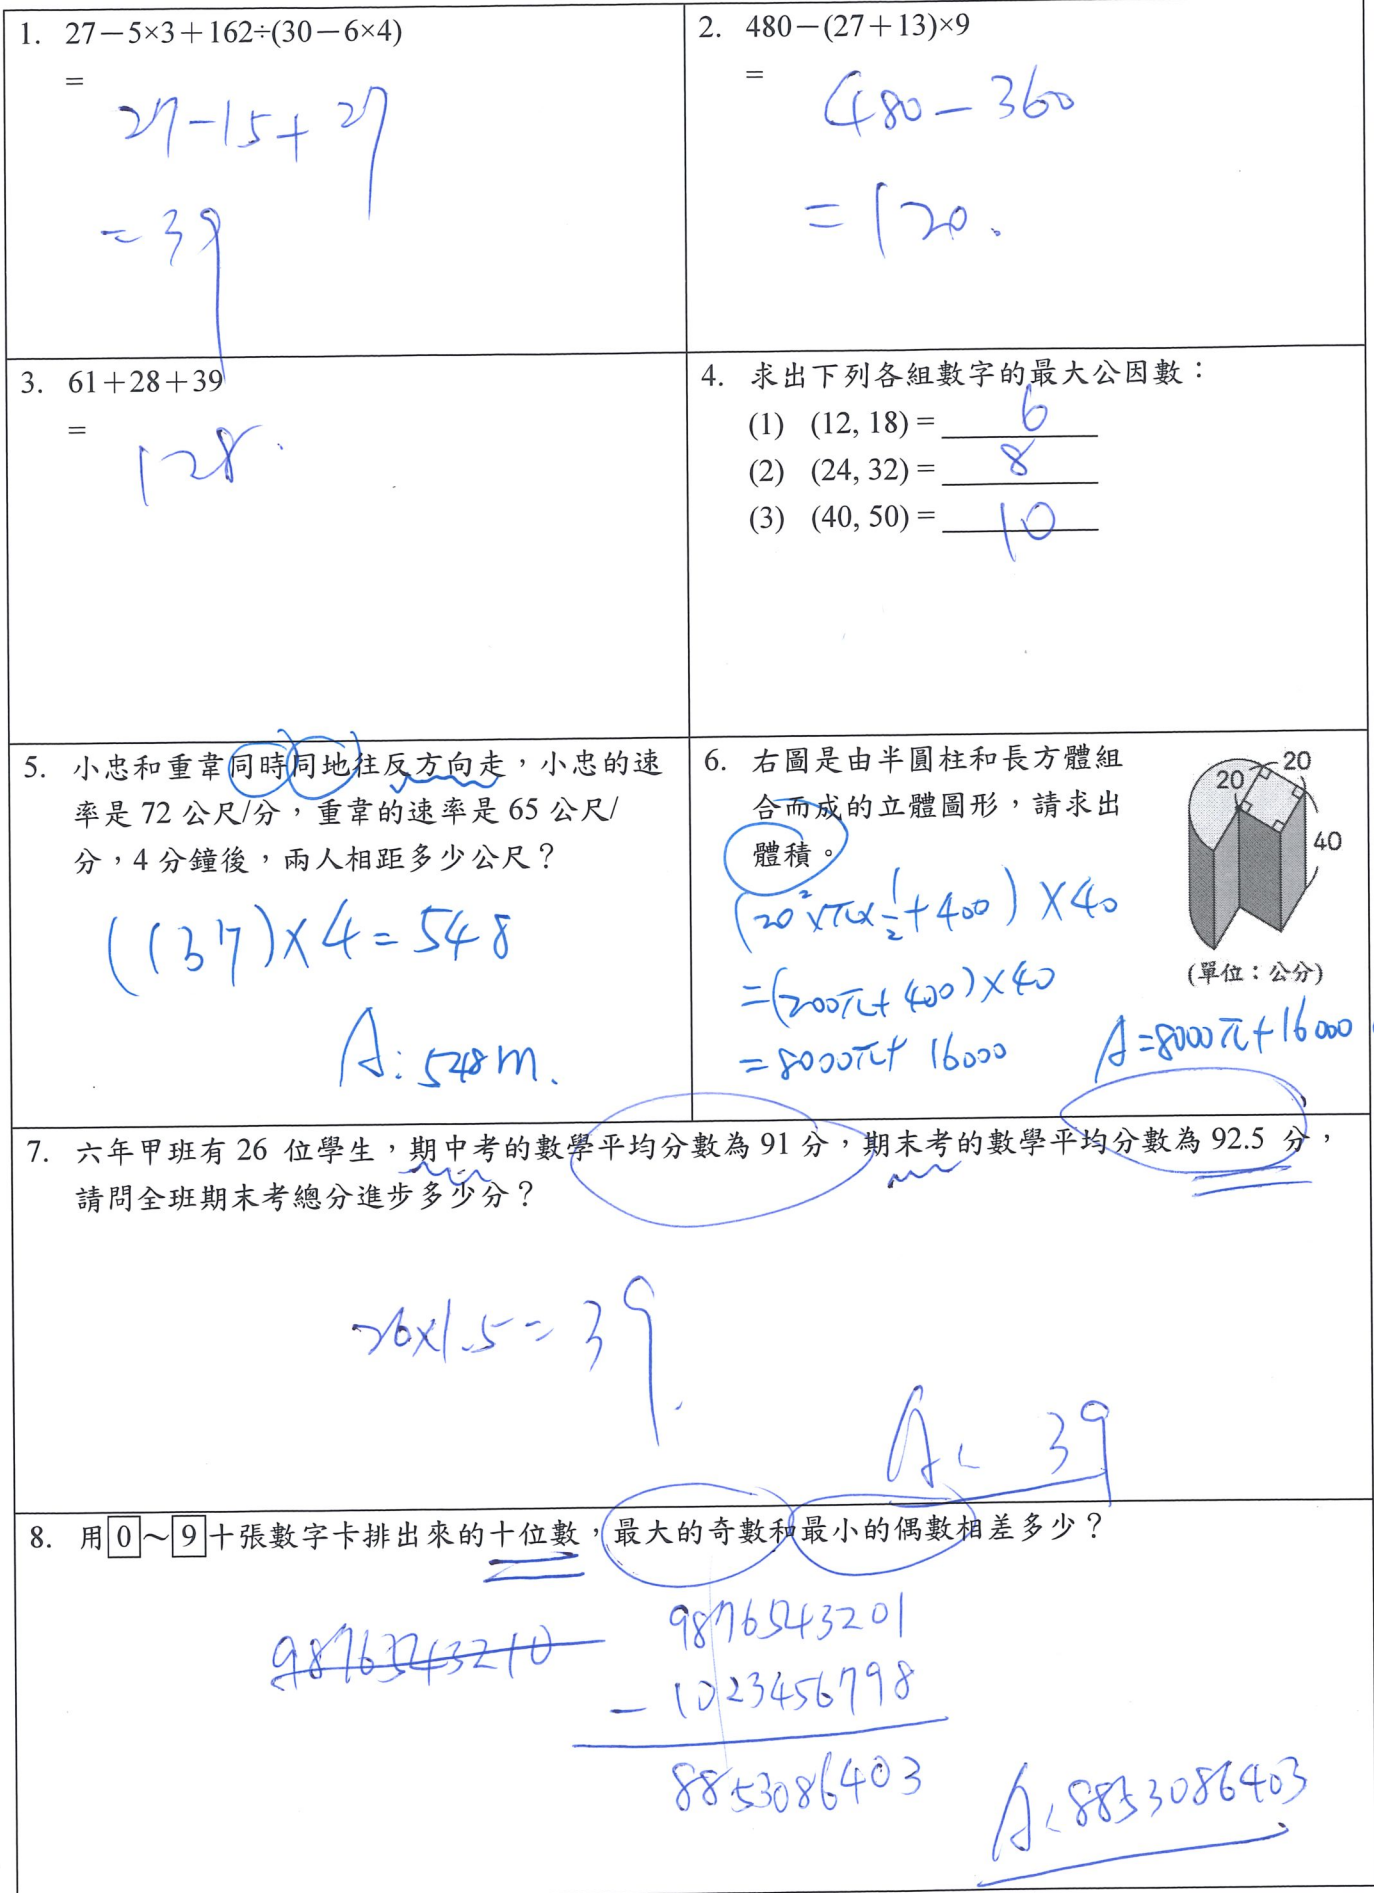 1. 27－5×3＋162÷(30－6×4)
=
27-15+27
=39
2. 480－(27＋13)×9
=
480-360
=120.
3. 61＋28＋39
=
128.
4. 求出下列各組數字的最大公因數：
(1) (12, 18) = 6
(2) (24, 32) = 8
(3) (40, 50) = 10
5. 小忠和重韋同時同地往反方向走，小忠的速
率是 72 公尺/分，重韋的速率是 65 公尺/
分，4 分鐘後，兩人相距多少公尺？
(137)×4=548
A: 548m.
6. 右圖是由半圓柱和長方體組
合而成的立體圖形，請求出
體積。
20
20
40
(單位：公分)
(20²×π×1/2+400)×40
=(200π+400)×40
=8000π+16000
A=8000π+16000
7. 六年甲班有 26 位學生，期中考的數學平均分數為 91 分，期末考的數學平均分數為 92.5 分，
請問全班期末考總分進步多少分？
26×1.5=39.
A: 39
8. 用 0 ～ 9 十張數字卡排出來的十位數，最大的奇數和最小的偶數相差多少？
9876543210
9876543201
- 1023456798
8853086403
A: 8853086403